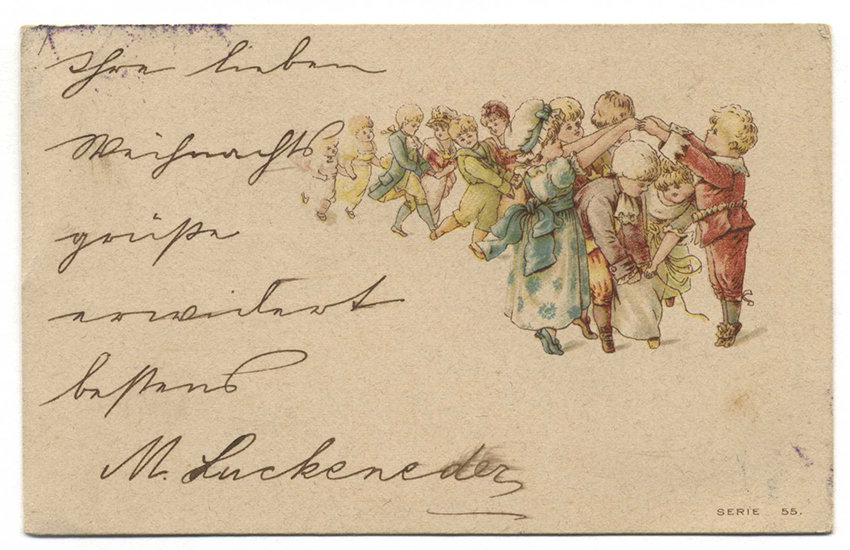 Ihre lieben
Weihnachts
grüße
erwidert
bestens
M. Luckeneder
SERIE 55.